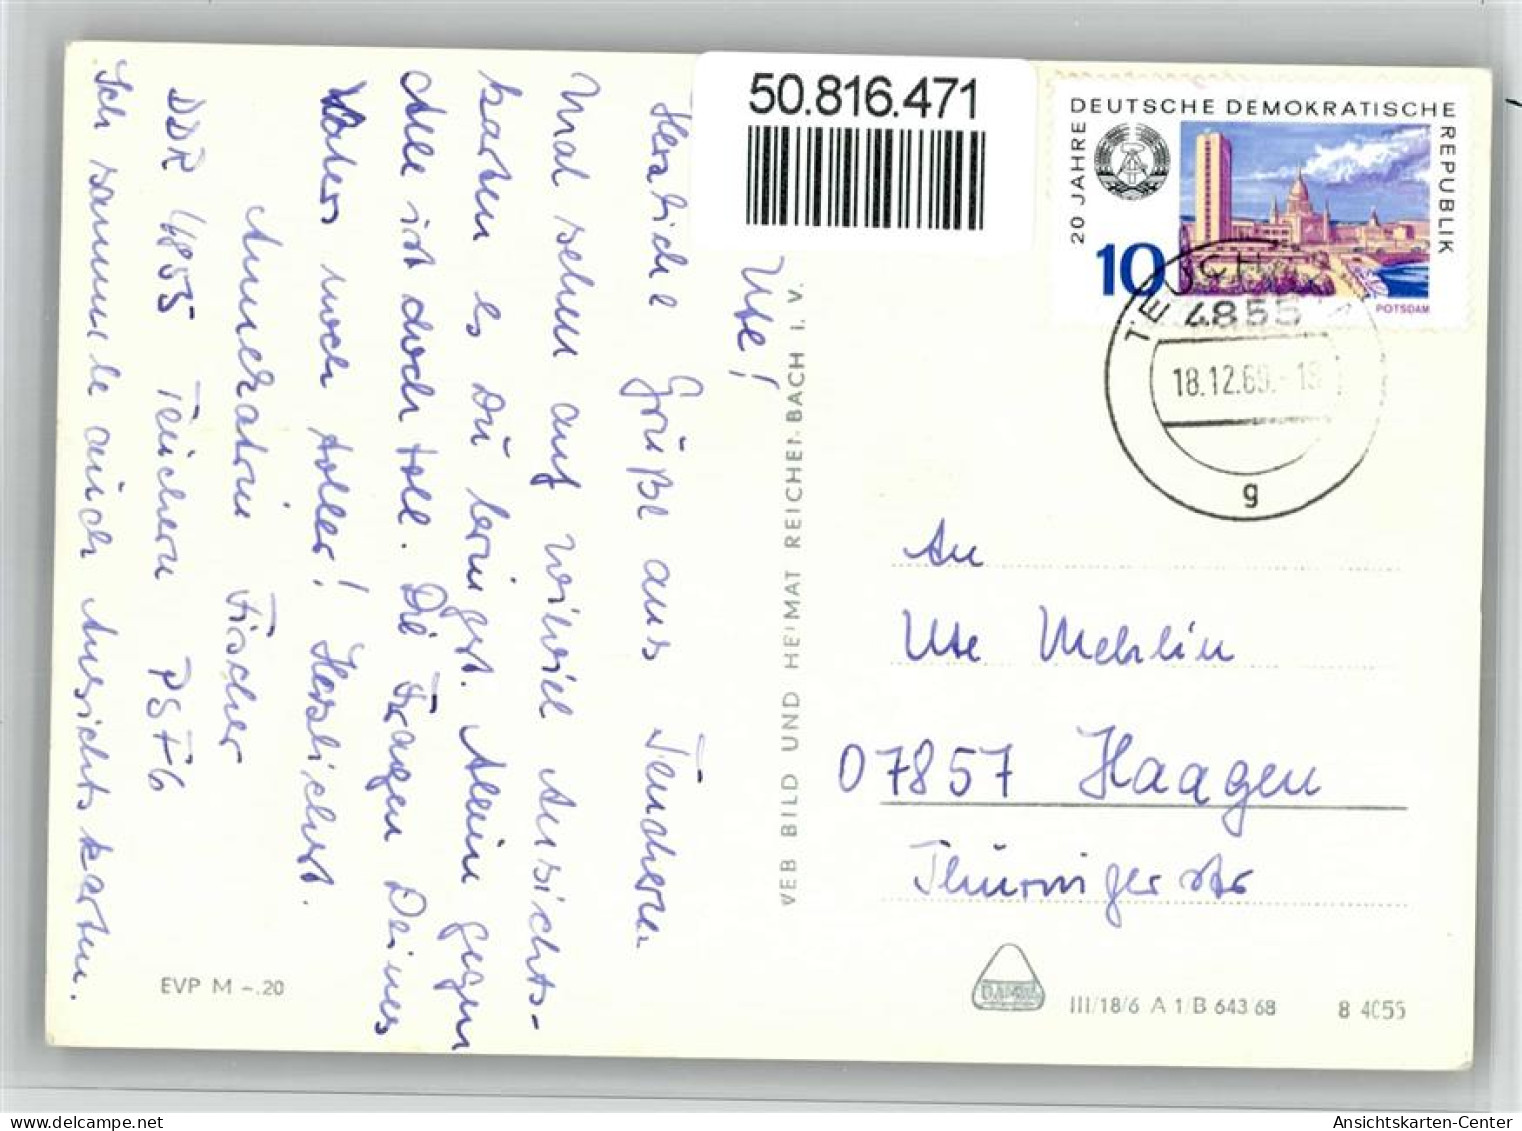 50.816.471
DEUTSCHE DEMOKRATISCHE
REPUBLIK
20 JAHRE
10
POTSDAM
4855
18.12.69.-18
g
Ute!
Herzliche Grüße aus Teuchern
Mal sehen auf wieviel Ansichts-
karten es Du bringst. Allein gegen
alle ist doch toll. Die Fragen Deines
Vaters noch toller! Herzlichst.
Annekatrin Fischer
DDR 4855 Teuchern PSF6
Ich sammle auch Ansichtskarten.
VEB BILD UND HEIMAT REICHENBACH I. V.
An
Ute Mehlin
07857 Haagen
Thüringer str
EVP M -.20
III/18/6 A 1/B 643 68
8 4055
delcampe.net
Ansichtskarten-Center